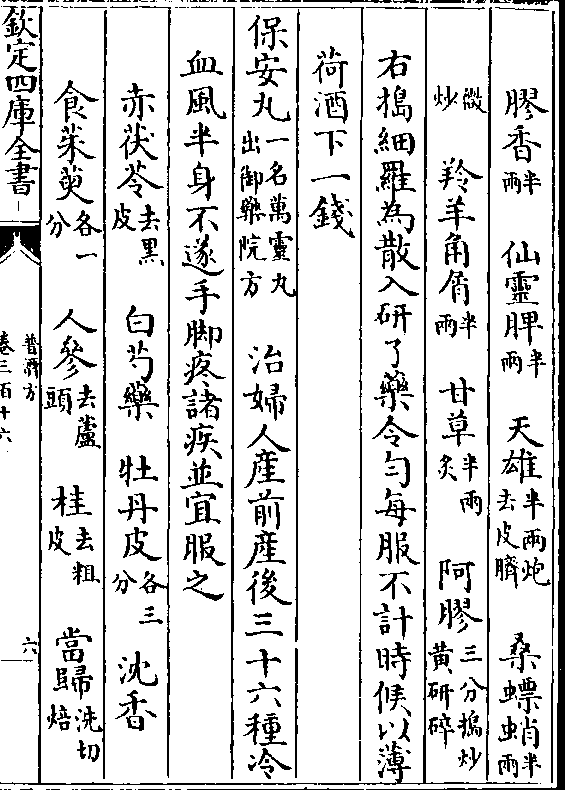 膠香半兩 仙靈脾半兩 天雄半兩炮去皮臍 桑螵蛸半兩
微炒 羚羊角屑半兩 甘草半兩炙 阿膠三分搗炒黄研碎
右搗細羅為散入研了藥令勻每服不計時候以薄
荷酒下一錢
保安丸一名萬靈丸出御藥院方 治婦人産前産後三十六種冷
血風半身不遂手脚疼諸疾並宜服之
赤茯苓去黑皮 白芍藥 牡丹皮各三分 沈香
食茱萸各一分 人參去蘆頭 桂去粗皮 當歸洗切焙
欽定四庫全書
普濟方
卷三百十六
六